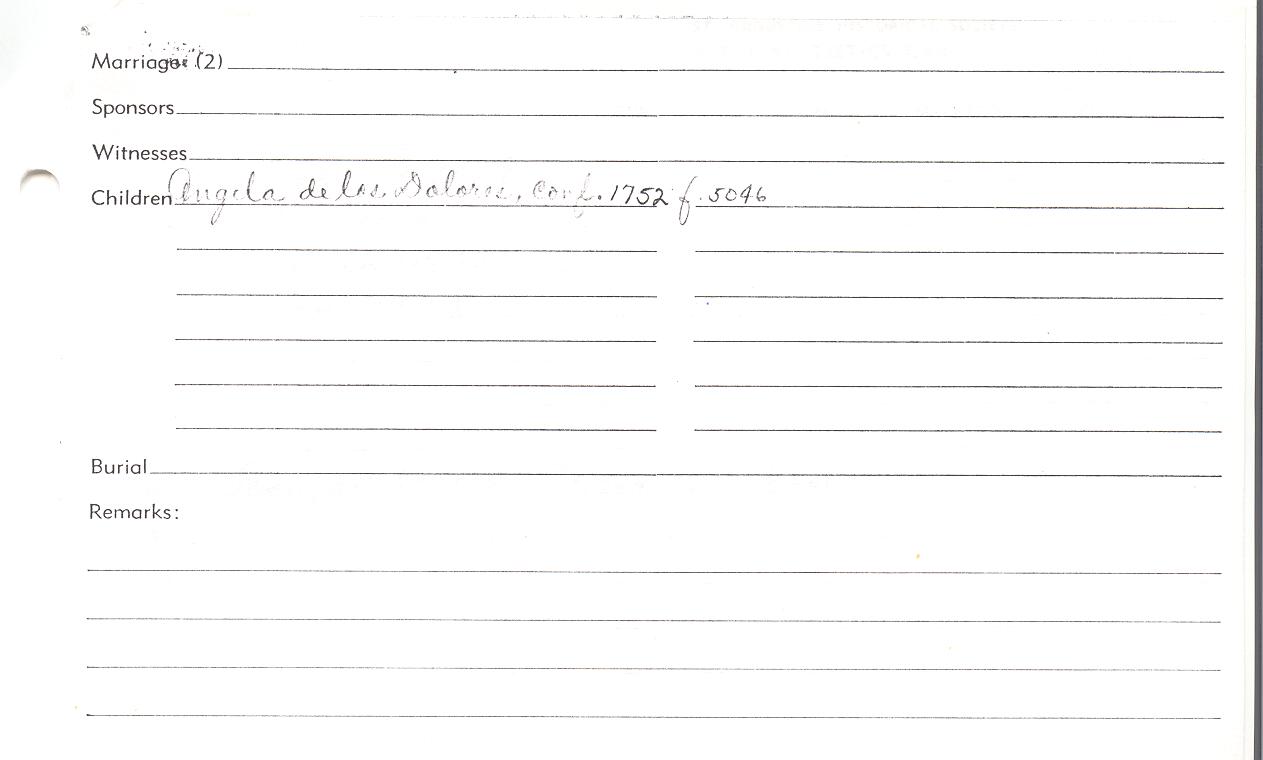 Marriage (2)
Sponsors
Witnesses
Children Angela de los Dolores, Conf. 1752 f. 5046
Burial
Remarks: